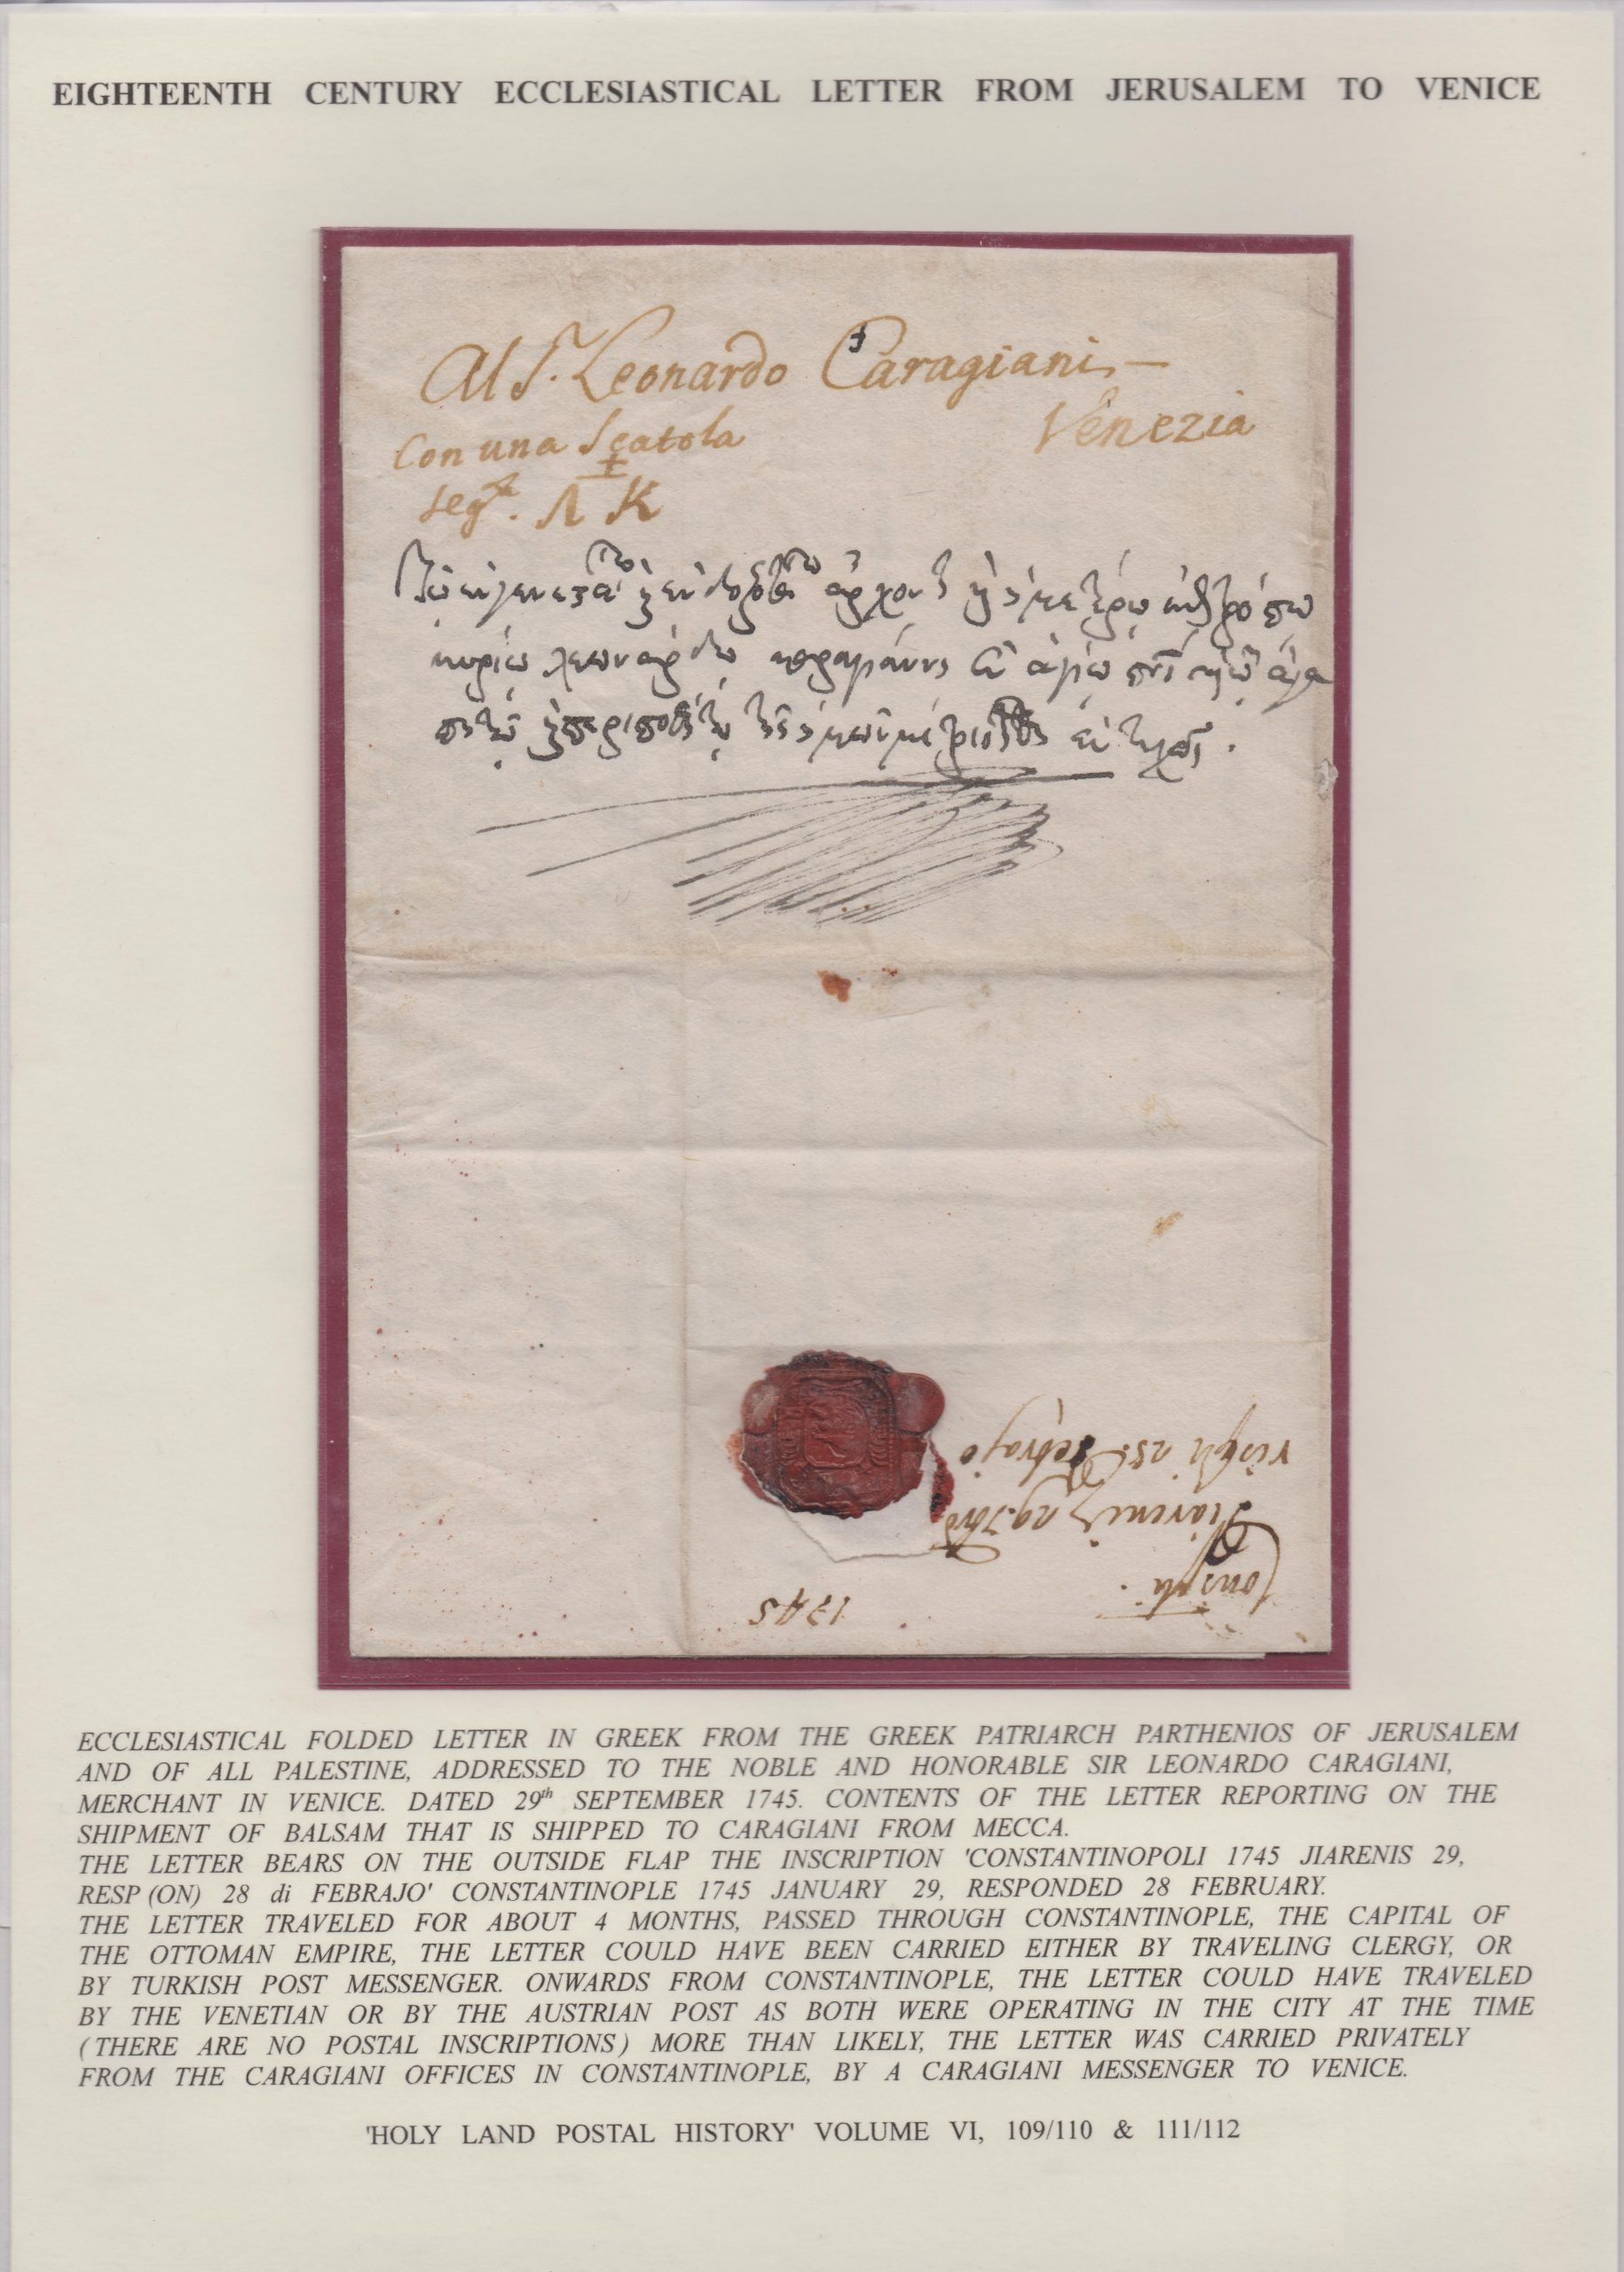 EIGHTEENTH CENTURY ECCLESIASTICAL LETTER FROM JERUSALEM TO VENICE
Al S.r Leonardo Caragiani —
Venezia
Con una Scatola
seg.ta Λ Κ
κυρίω λεονάρδω καραγιάννη
1745
ECCLESIASTICAL FOLDED LETTER IN GREEK FROM THE GREEK PATRIARCH PARTHENIOS OF JERUSALEM
AND OF ALL PALESTINE, ADDRESSED TO THE NOBLE AND HONORABLE SIR LEONARDO CARAGIANI,
MERCHANT IN VENICE. DATED 29th SEPTEMBER 1745. CONTENTS OF THE LETTER REPORTING ON THE
SHIPMENT OF BALSAM THAT IS SHIPPED TO CARAGIANI FROM MECCA.
THE LETTER BEARS ON THE OUTSIDE FLAP THE INSCRIPTION 'CONSTANTINOPOLI 1745 JIARENIS 29,
RESP (ON) 28 di FEBRAJO' CONSTANTINOPLE 1745 JANUARY 29, RESPONDED 28 FEBRUARY.
THE LETTER TRAVELED FOR ABOUT 4 MONTHS, PASSED THROUGH CONSTANTINOPLE, THE CAPITAL OF
THE OTTOMAN EMPIRE, THE LETTER COULD HAVE BEEN CARRIED EITHER BY TRAVELING CLERGY, OR
BY TURKISH POST MESSENGER. ONWARDS FROM CONSTANTINOPLE, THE LETTER COULD HAVE TRAVELED
BY THE VENETIAN OR BY THE AUSTRIAN POST AS BOTH WERE OPERATING IN THE CITY AT THE TIME
(THERE ARE NO POSTAL INSCRIPTIONS) MORE THAN LIKELY, THE LETTER WAS CARRIED PRIVATELY
FROM THE CARAGIANI OFFICES IN CONSTANTINOPLE, BY A CARAGIANI MESSENGER TO VENICE.
'HOLY LAND POSTAL HISTORY' VOLUME VI, 109/110 & 111/112